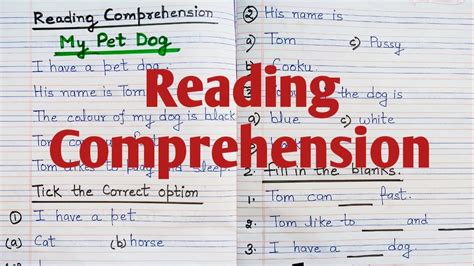 Reading Comprehension
My Pet Dog
I have a pet dog.
His name is Tom
The colour of my dog is black
Tom
Tom sleep.
Tick the Correct option
① I have a pet
(a) Cat (b) horse
② His name is
a) Tom c) Pussy
b) Cooku
the dog is
blue c) white
2. Fill in the blanks.
1. Tom can ____ fast.
2. Tom like to ____ and ____
3. I have a ____ dog.
Reading
Comprehension